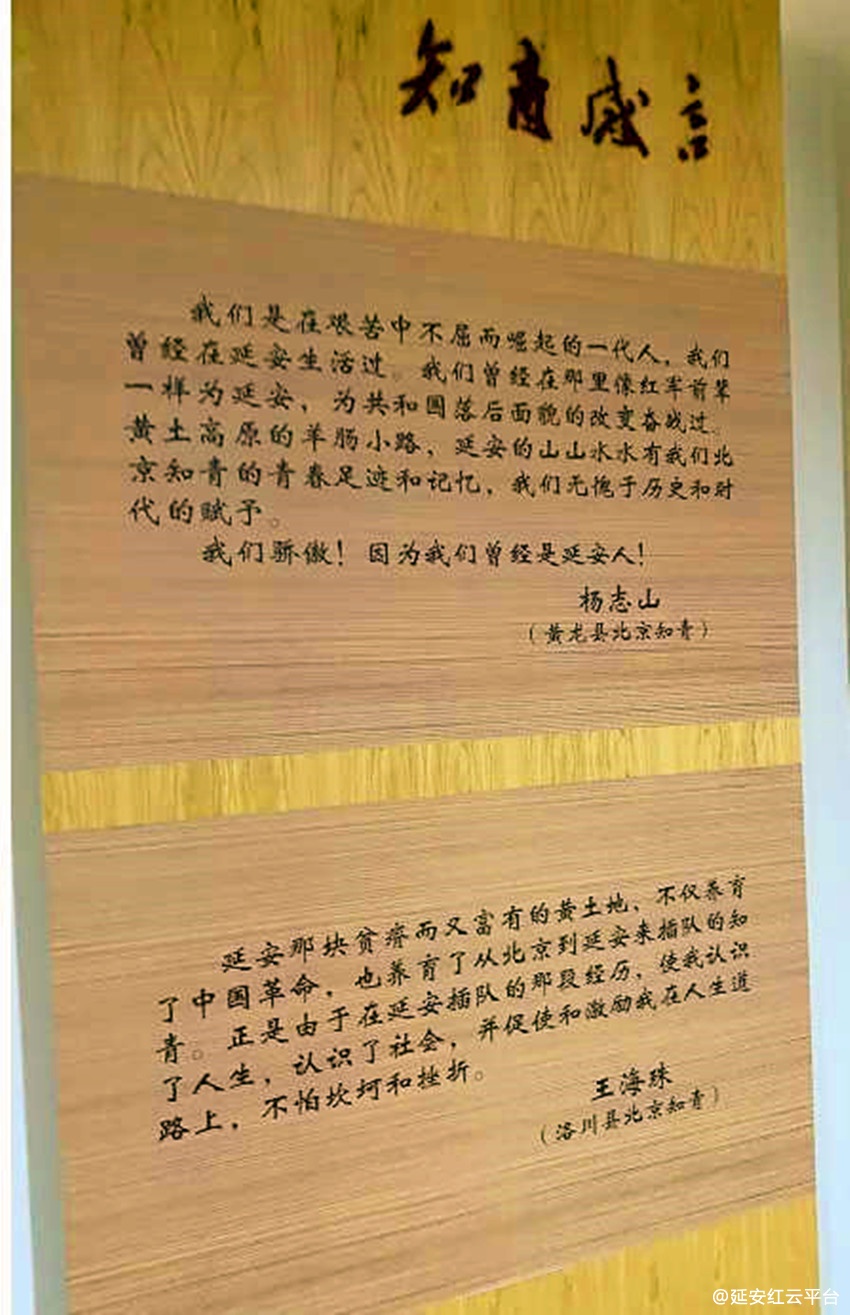 知青感言
我们是在艰苦中不屈而崛起的一代人，我们
曾经在延安生活过。我们曾经在那里像红军前辈
一样为延安，为共和国落后面貌的改变奋战过。
黄土高原的羊肠小路，延安的山山水水有我们北
京知青的青春足迹和记忆，我们无愧于历史和时
代的赋予。
我们骄傲！因为我们曾经是延安人！
杨志山
（黄龙县北京知青）
延安那块贫瘠而又富有的黄土地，不仅养育
了中国革命，也养育了从北京到延安来插队的知
青。正是由于在延安插队的那段经历，使我认识
了人生，认识了社会，并促使和激励我在人生道
路上，不怕坎坷和挫折。
王海珠
（洛川县北京知青）
@延安红云平台